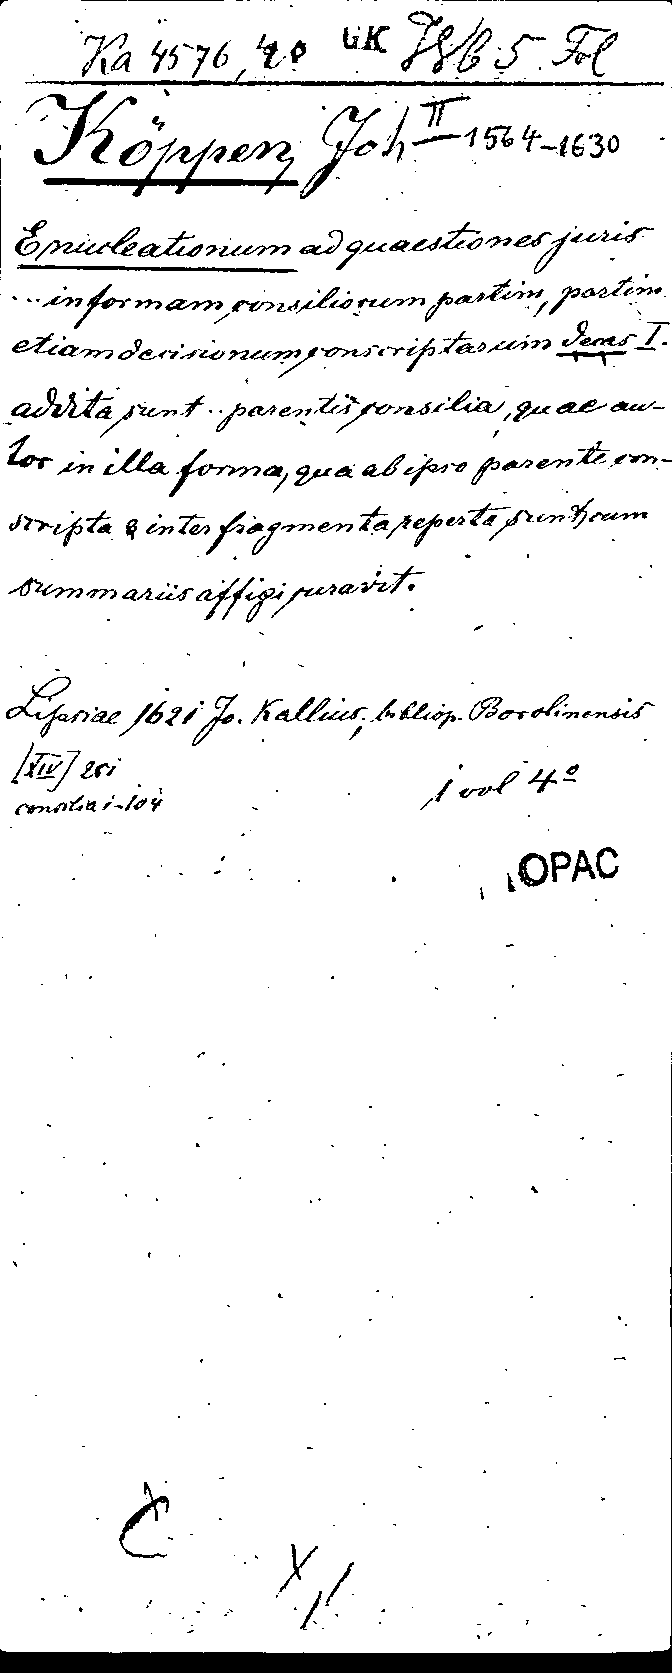 Ka 4576, 4° GK 5 Fol
Köppen, Joh II 1564–1630
Enucleationum ad quaestiones juris
... in formam consiliorum partim, partim
etiam decisionum conscriptarum Decas I.
addita sunt .. parentis consilia, quae au-
tor in illa forma, qua ab ipso parente con-
scripta & inter fragmenta reperta sunt, cum
summariis affigi curavit.
Lipsiae 1621 Jo. Kallius, bibliop. Berolinensis
[XIV] 251
consilia 1-104
1 vol 4°
OPAC